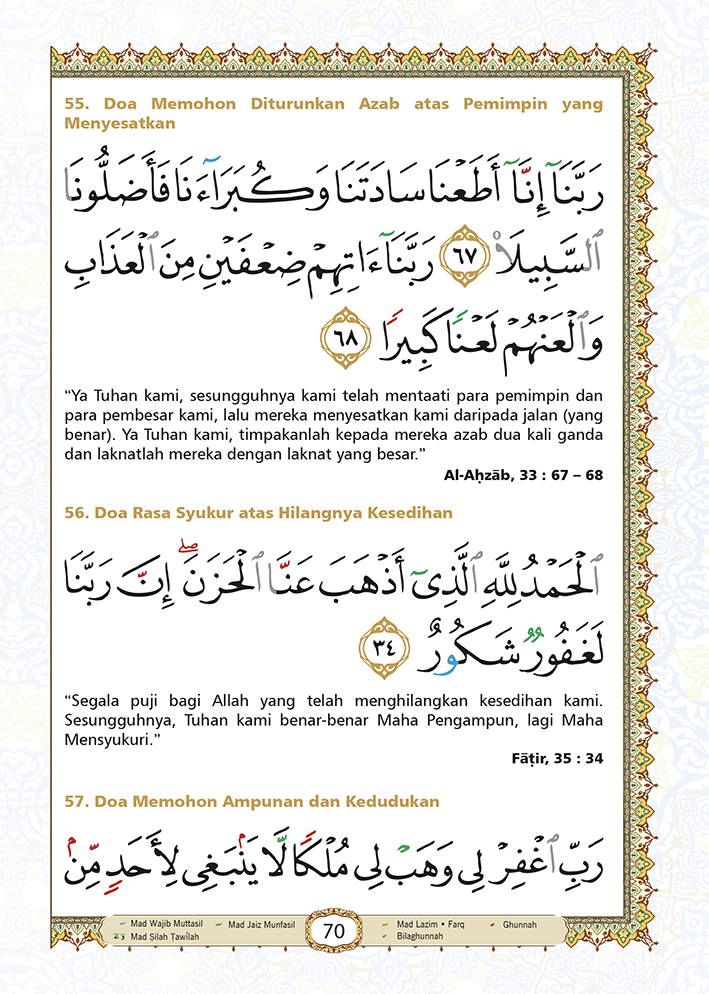 55. Doa Memohon Diturunkan Azab atas Pemimpin yang
Menyesatkan
رَبَّنَآ إِنَّآ أَطَعْنَا سَادَتَنَا وَكُبَرَآءَنَا فَأَضَلُّونَا
ٱلسَّبِيلَا۠ ٦٧ رَبَّنَآ ءَاتِهِمْ ضِعْفَيْنِ مِنَ ٱلْعَذَابِ
وَٱلْعَنْهُمْ لَعْنًا كَبِيرًا ٦٨
“Ya Tuhan kami, sesungguhnya kami telah mentaati para pemimpin dan
para pembesar kami, lalu mereka menyesatkan kami daripada jalan (yang
benar). Ya Tuhan kami, timpakanlah kepada mereka azab dua kali ganda
dan laknatlah mereka dengan laknat yang besar.”
Al-Aḥzāb, 33 : 67 – 68
56. Doa Rasa Syukur atas Hilangnya Kesedihan
ٱلْحَمْدُ لِلَّهِ ٱلَّذِىٓ أَذْهَبَ عَنَّا ٱلْحَزَنَ ۖ إِنَّ رَبَّنَا
لَغَفُورٌ شَكُورٌ ٣٤
“Segala puji bagi Allah yang telah menghilangkan kesedihan kami.
Sesungguhnya, Tuhan kami benar-benar Maha Pengampun, lagi Maha
Mensyukuri.”
Fāṭir, 35 : 34
57. Doa Memohon Ampunan dan Kedudukan
رَبِّ ٱغْفِرْ لِى وَهَبْ لِى مُلْكًا لَّا يَنۢبَغِى لِأَحَدٍ مِّنۢ
Mad Wajib Muttasil Mad Jaiz Munfasil Mad Lazim • Farq Ghunnah
Mad Ṣilah Ṭawīlah Bilaghunnah
70